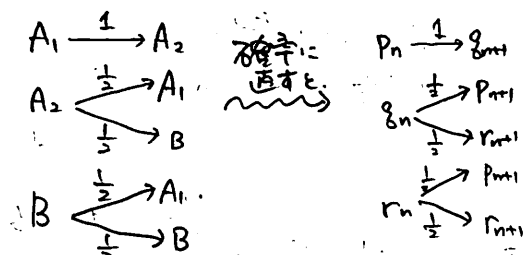 A₁ →(1) A₂
A₂ →(1/2) A₁
→(1/2) B
B →(1/2) A₁.
→(1/2) B
確率に
直すと.
pₙ →(1) qₙ₊₁
qₙ →(1/2) pₙ₊₁
→(1/2) rₙ₊₁
rₙ →(1/2) pₙ₊₁
→(1/2) rₙ₊₁